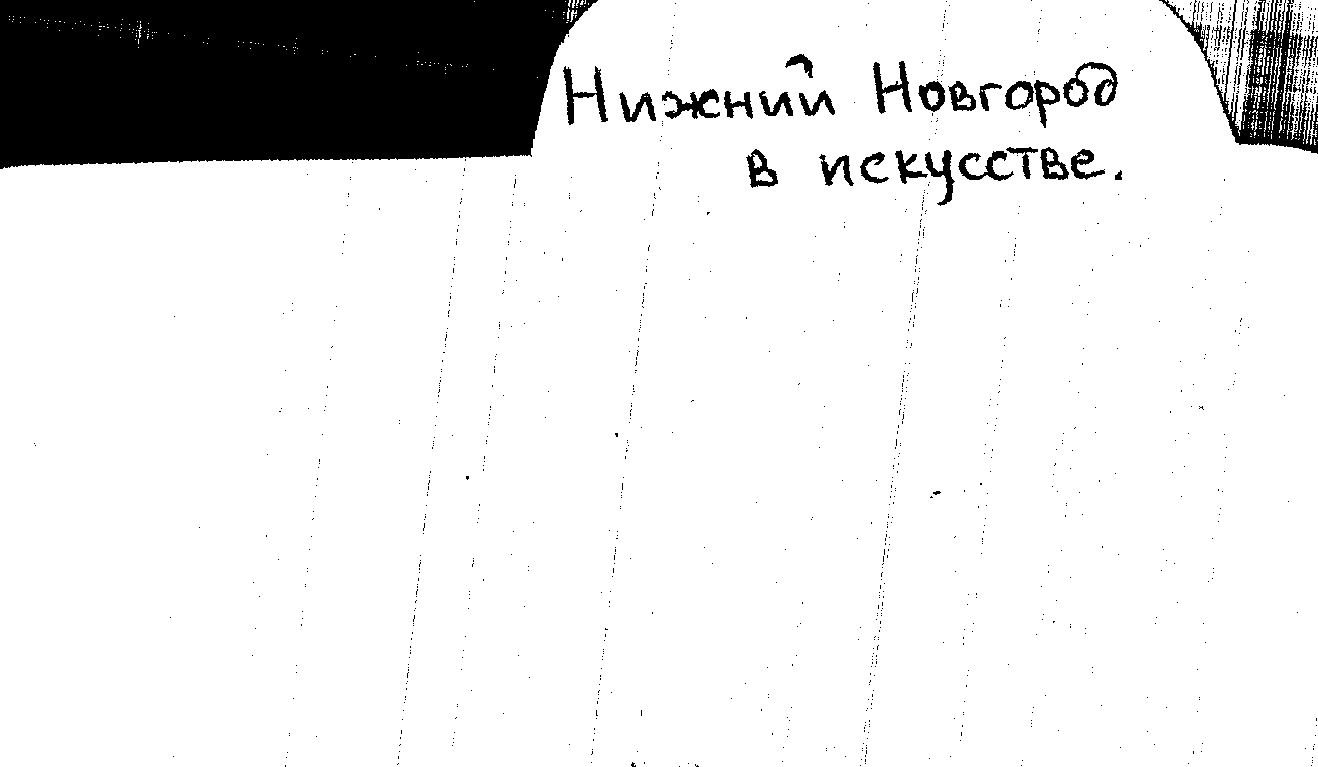 Нижний Новгород
в искусстве.